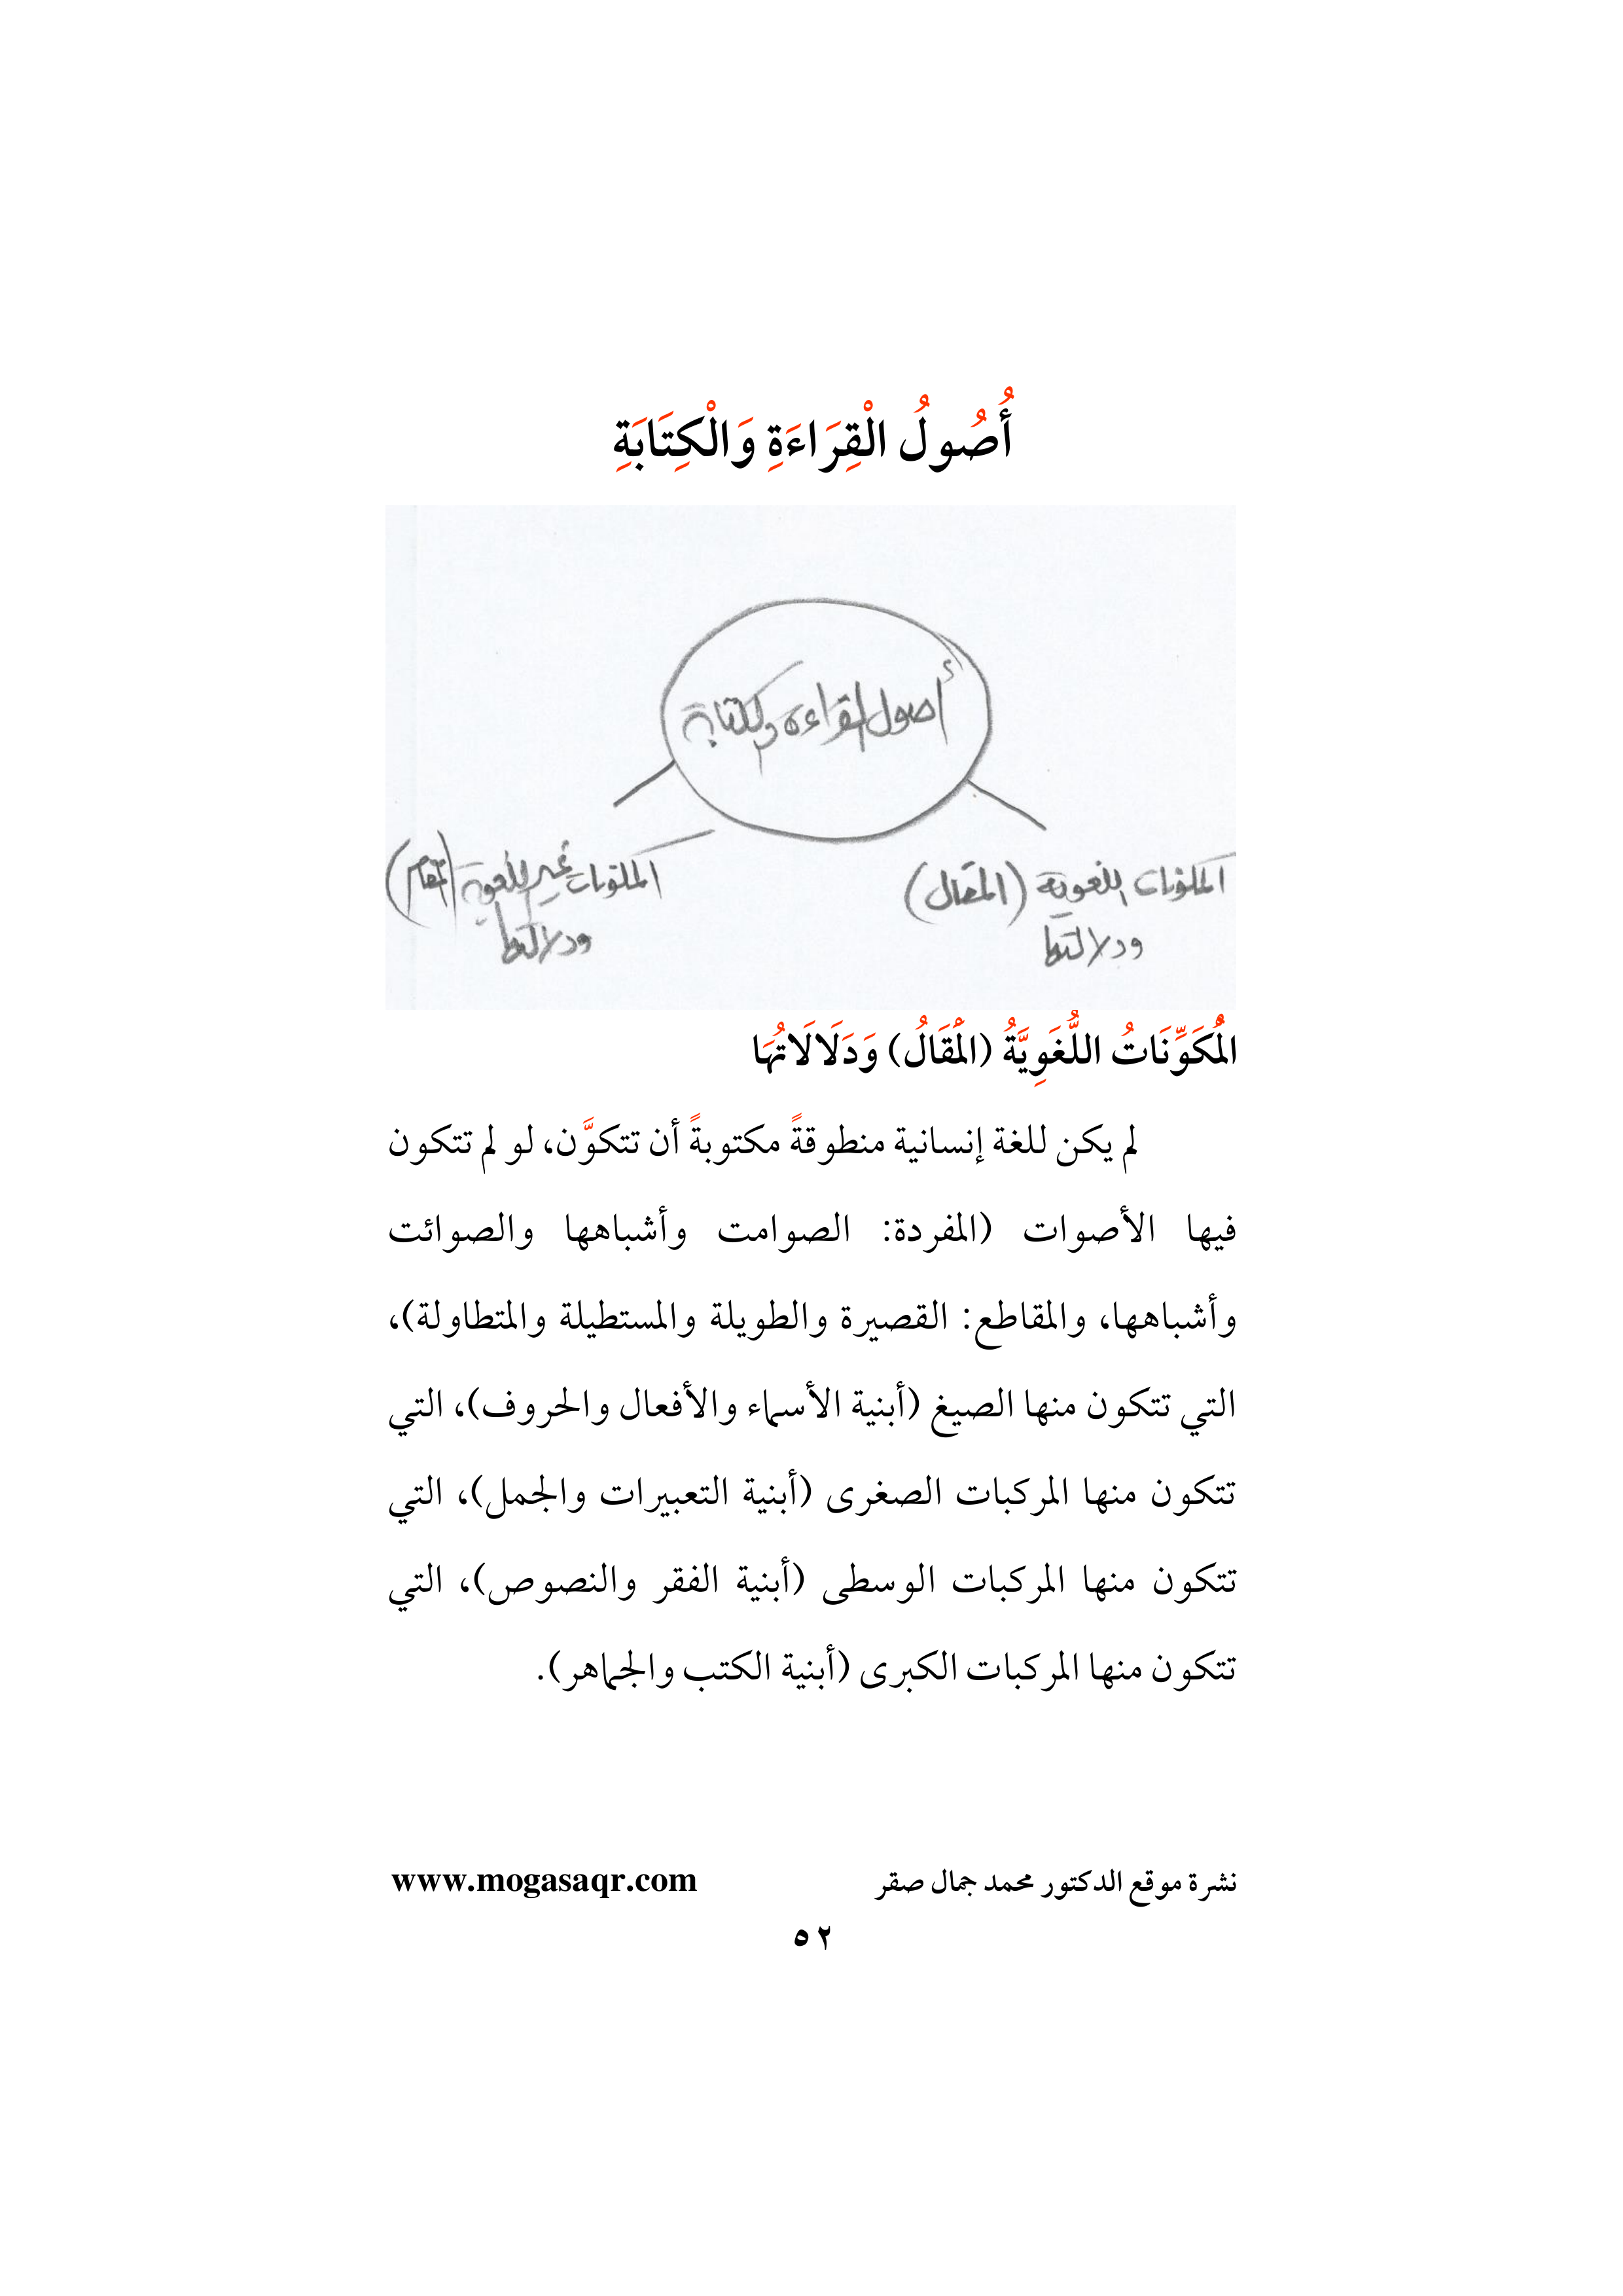 أُصُولُ الْقِرَاءَةِ وَالْكِتَابَةِ
أصول القراءة والكتابة
المكونات اللغوية (المقال)
ودلالتها
المكونات غير اللغوية (المقام)
ودلالتها
الْمُكَوِّنَاتُ اللُّغَوِيَّةُ (الْمَقَالُ) وَدَلَالَاتُهَا
لم يكن للغة إنسانية منطوقةً مكتوبةً أن تتكوَّن، لو لم تتكون
فيها الأصوات (المفردة: الصوامت وأشباهها والصوائت
وأشباهها، والمقاطع: القصيرة والطويلة والمستطيلة والمتطاولة)،
التي تتكون منها الصيغ (أبنية الأسماء والأفعال والحروف)، التي
تتكون منها المركبات الصغرى (أبنية التعبيرات والجمل)، التي
تتكون منها المركبات الوسطى (أبنية الفقر والنصوص)، التي
تتكون منها المركبات الكبرى (أبنية الكتب والجماهر).
نشرة موقع الدكتور محمد جمال صقر www.mogasaqr.com
٥٢